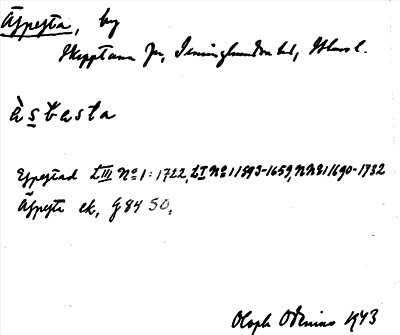 Äspesta, by
Skepptuna sn, Seminghundra hd, Uppl.
ȧsbesta
Espestad LIII No 1: 1722, LI No 1 1593-1659, N No 1 1690-1732
Äspesta ek, G 84 SO,
Oloph Odenius 1943